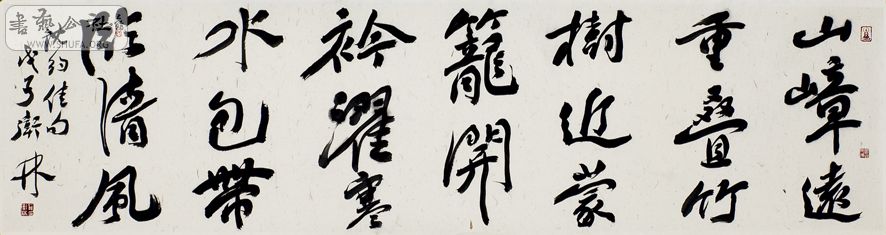 山嶂遠
重叠竹
樹近蒙
籠開
衿濯寒
水包帶
臨清風
沈約佳句
戊子衛林
書藝公社
WWW.SHUFA.ORG